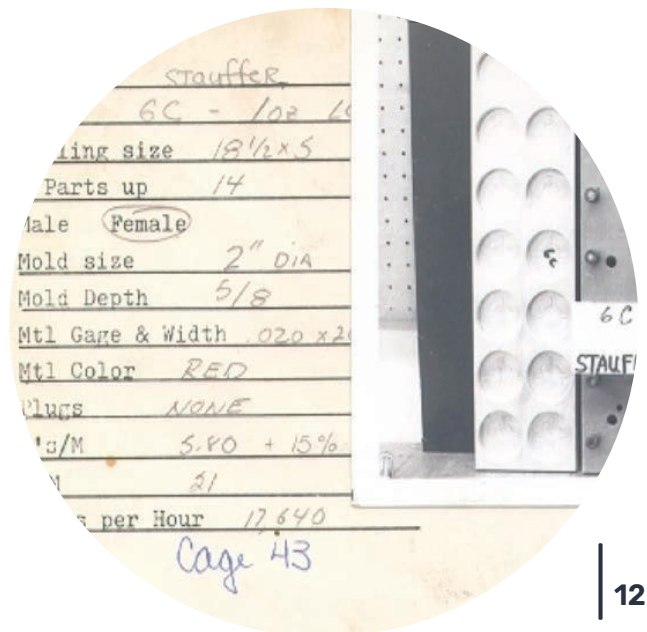 Stauffer
6C - 1oz
ling size 18 1/2 x 5
Parts up 14
Male Female
Mold size 2" DIA
Mold Depth 5/8
Mtl Gage & Width .020 x 2
Mtl Color RED
Plugs NONE
's/M 5.80 + 15%
M 21
s per Hour 17,640
Cage 43
6 C
STAUF
12